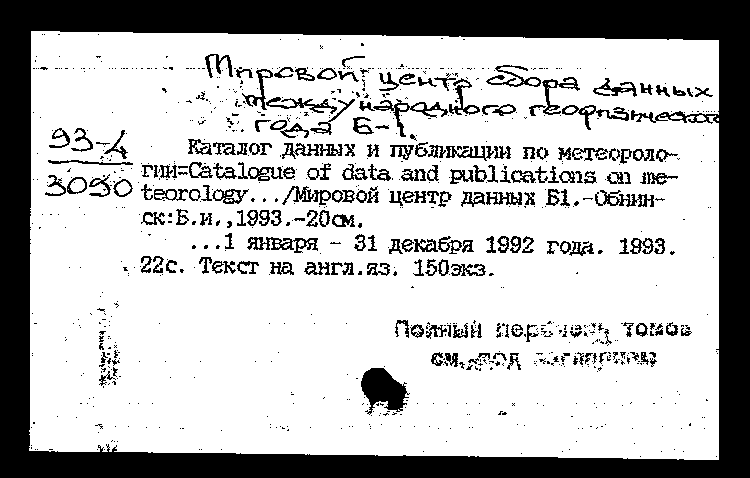 Мировой центр сбора данных
международного геофизического
года Б-1.
93-4
3090
Каталог данных и публикации по метеороло-
гии=Catalogue of data and publications on me-
teorology.../Мировой центр данных Б1.-Обнин-
ск:Б.и.,1993.-20см.
...1 января - 31 декабря 1992 года. 1993.
22с. Текст на англ.яз. 150экз.
Полный перечень томов
см. под заглавием